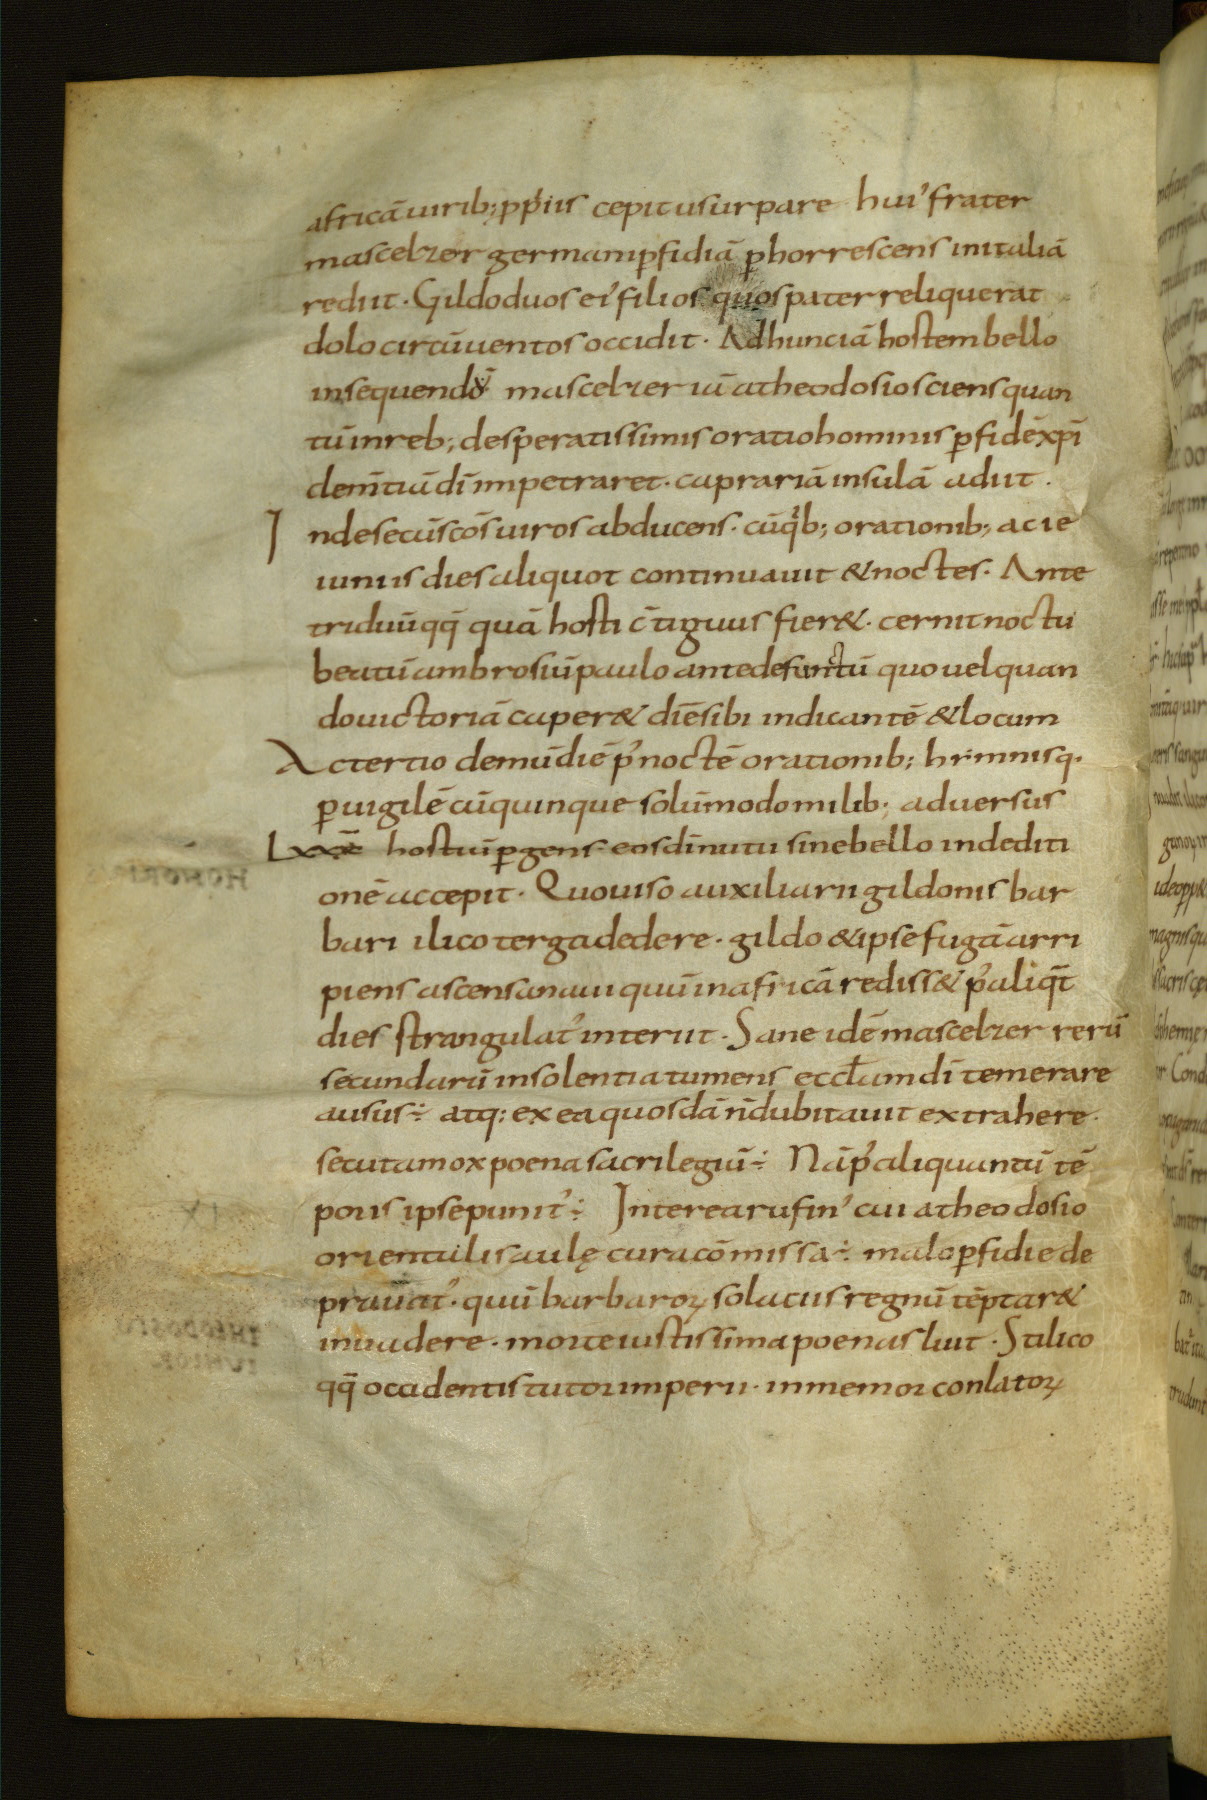 africā uirib; ꝓpiis cepit usurpare hui' frater
mascelzer germani ꝑfidiā ꝑhorrescens in italiā
rediit · Gildo duos ei' filios quos pater reliquerat
dolo circūuentos occidit · Ad hunc iā hostem bello
insequendū mascelzer iā a theodosio sciens quan
tū in reb; desperatissimis oratio hominis ꝑ fidē xp̄i
clem̄tiā dī impetraret · caprariā insulā adiit ·
Inde secū sc̄os uiros abducens · cū qib; orationib; ac ie
iuniis dies aliquot continuauit & noctes · Ante
triduū qq̄ quā hosti c̄tiguus fier& · cernit noctu
beatū ambrosiū paulo ante defunctū quo uel quan
do uictoriā caper& diē sibi indicantē & locum
Ac tertio demū die p' noctē orationib; hymnisq·
ꝑuigilē cū quinque solūmodo milib; aduersus
Lxxx hostiū ꝑgens eos dī nutu sine bello in dediti
onē accepit · Quo uiso auxiliarii gildonis bar
bari ilico terga dedere · gildo & ipse fugā arri
piens ascensa naui quū in africā rediss& p' aliq̄t
dies strangulat' interiit · Sane idē mascelzer rerū
secundarū insolentia tumens eccƚam dī temerare
ausus ÷ atq; ex ea quosdā n̄ dubitauit extrahere ·
secuta mox poena sacrilegiū ÷ Nā p' aliquantū tē
poris ipse punit' ÷ Interea rufin' cui a theodosio
orientalis aulę cura cōmissa ÷ malo ꝑfidie de
prauat' · quū barbaroꝝ solaciis regnū tēptar&
inuadere · morte iustissima poenas luit · Stilico
qq̄ occidentis tutor imperii · inmemor conlatoꝝ